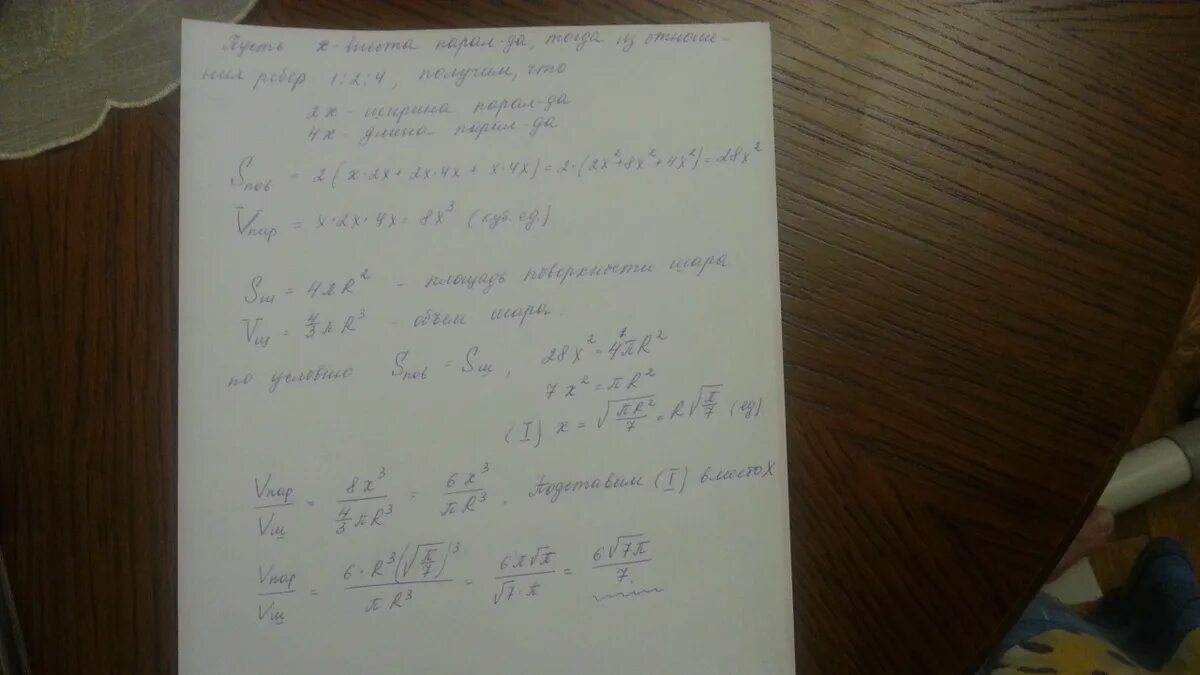 Пусть x - высота парал-да, тогда из отноше-
ния ребер 1:2:4, получим, что
2x - ширина парал-да
4x - длина парал-да
Sпов = 2(x·2x + 2x·4x + x·4x) = 2·(2x² + 8x² + 4x²) = 28x²
Vпар = x·2x·4x = 8x³ (куб.ед)
Sш = 4πR² - площадь поверхности шара
Vш = 4/3 πR³ - объем шара.
по условию Sпов = Sш, 28x² = 4πR²
7x² = πR²
(I) x = √(πR²/7) = R√(π/7) (ед)
Vпар/Vш = 8x³/(4/3 πR³) = 6x³/(πR³). Подставим (I) вместо X
Vпар/Vш = 6·R³(√(π/7))³/(πR³) = 6π√π/(√7·π) = 6√7π/7.